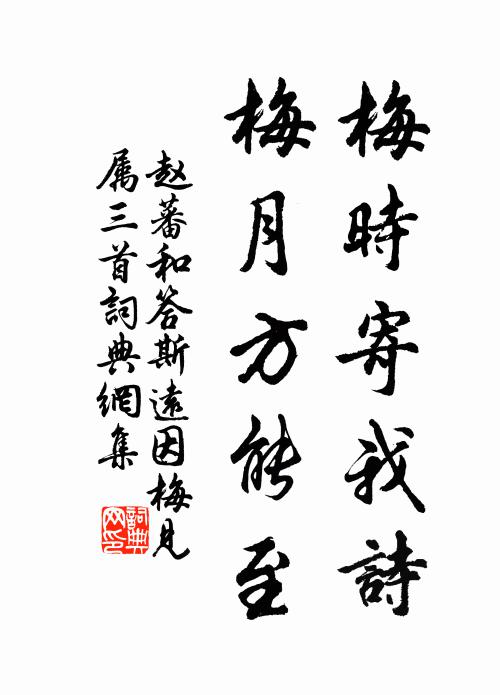 梅時寄我詩
梅月方能至
赵蕃和答斯遠因梅見
属三首詞典網集
詞典
网印